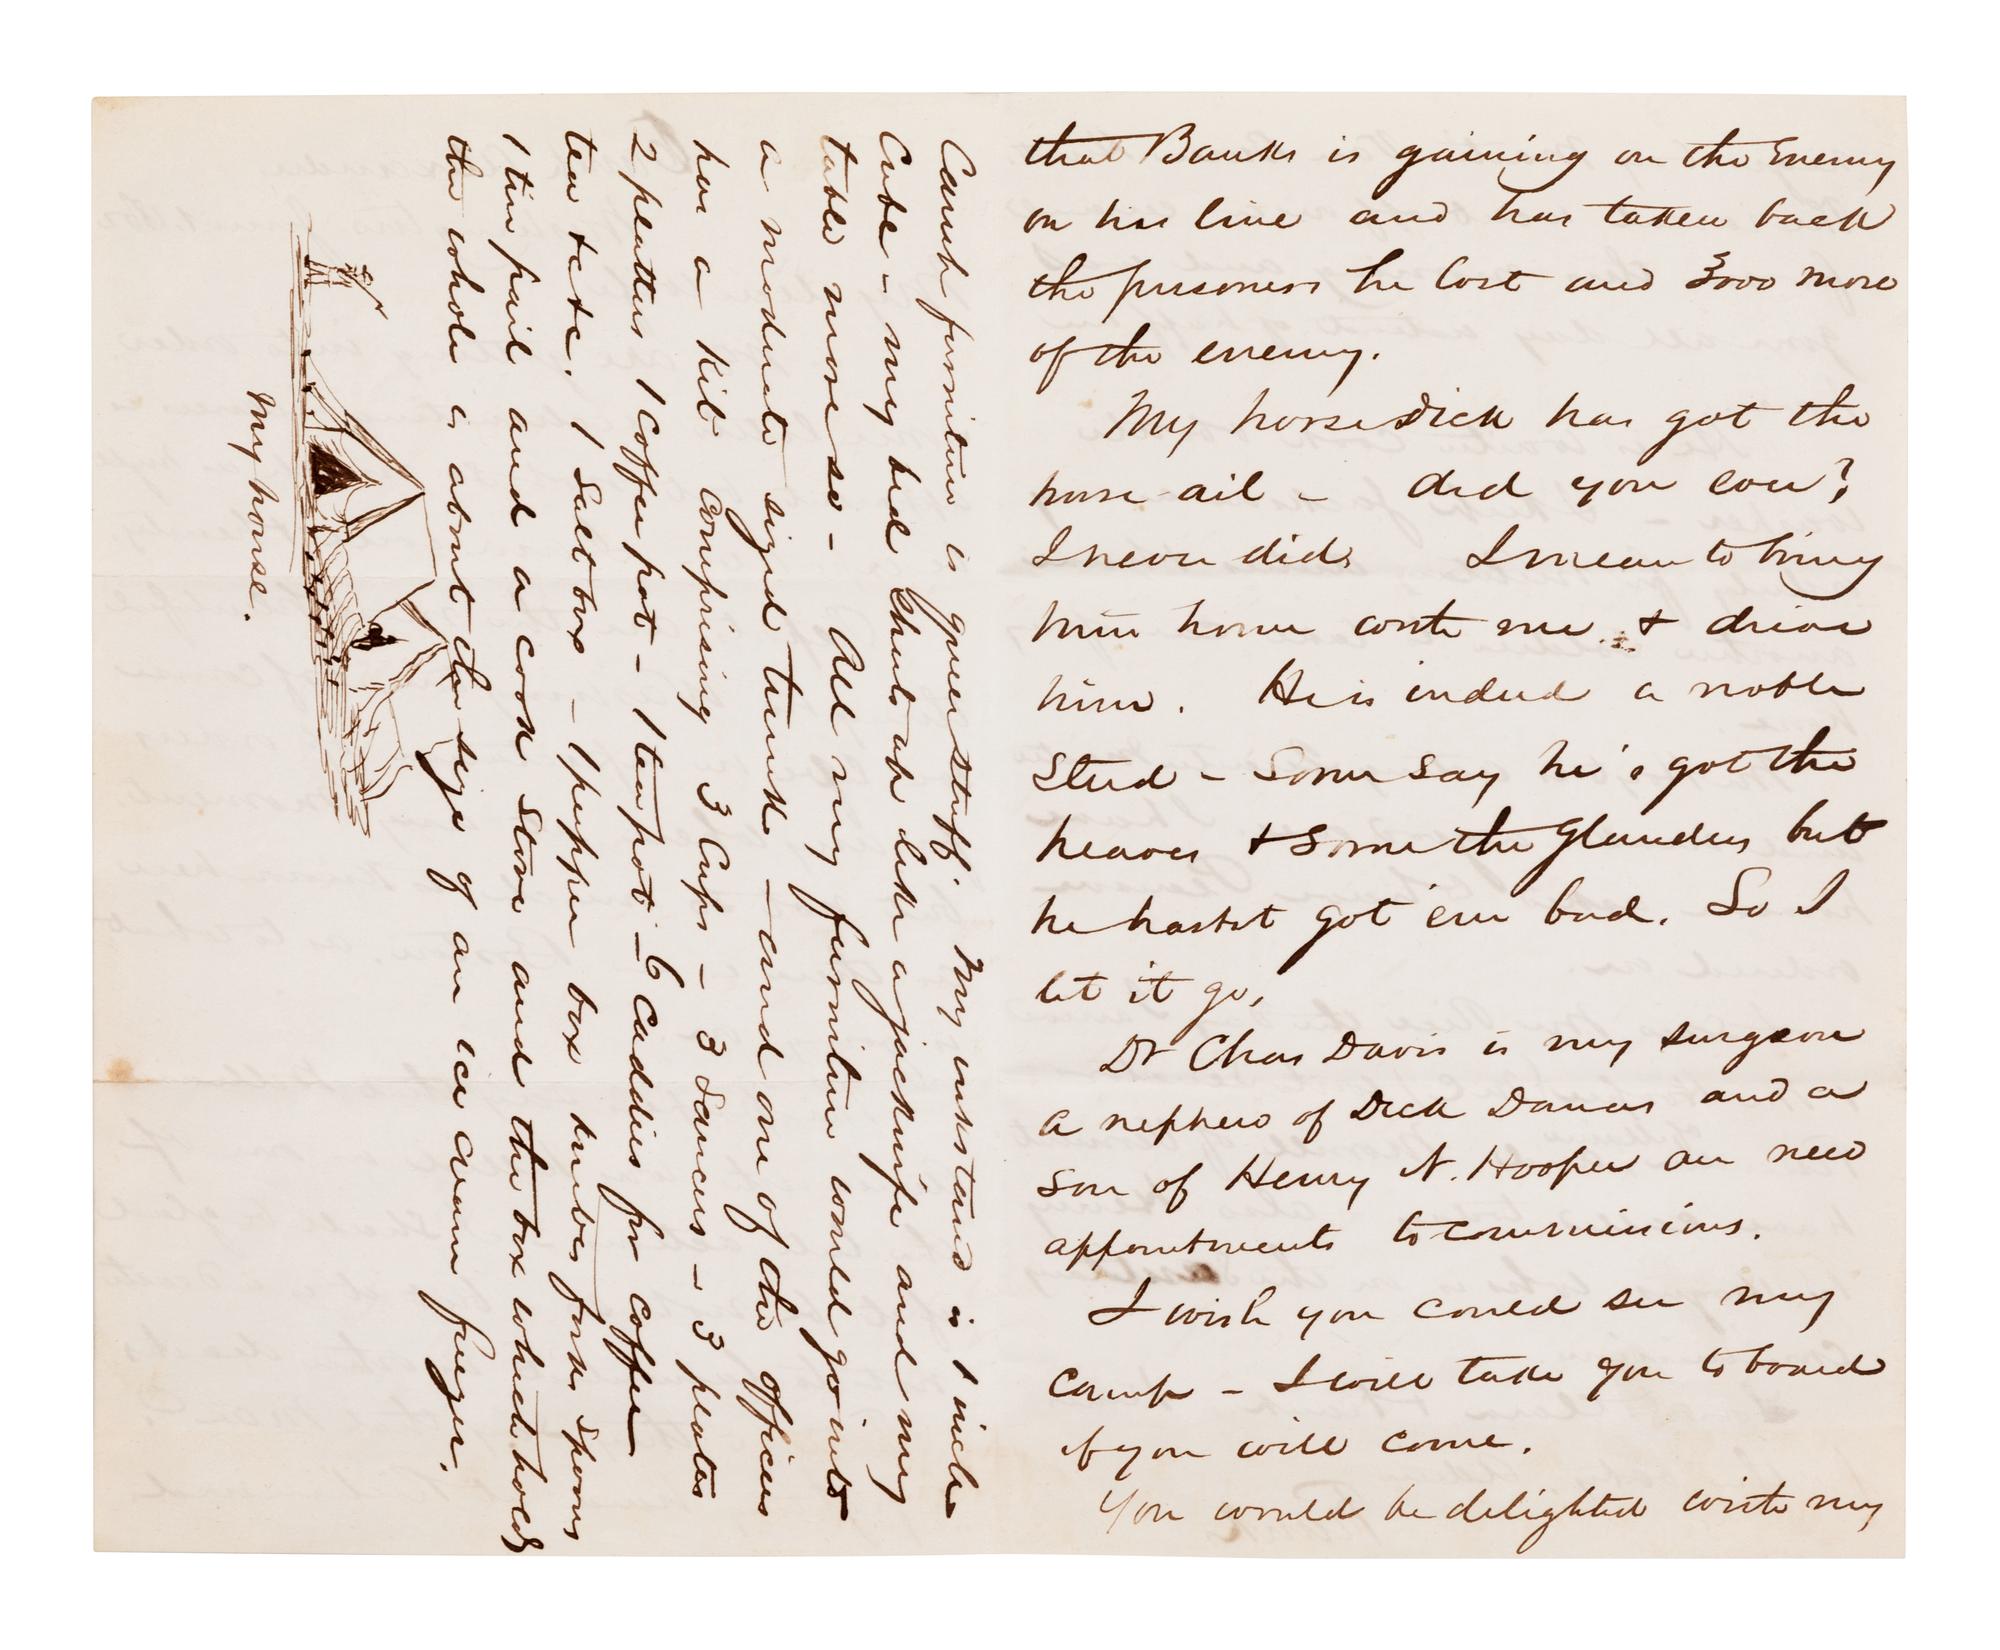 that Banks is gaining on the Enemy
on his line and has taken back
the prisoners he lost and 3000 more
of the enemy.
My horse Dick has got the
horse-ail - did you ever?
I never did I mean to bring
him home with me & drive
him. He is indeed a noble
Steed - Some say he's got the
heaves & some the Glanders but
he hasnt got em bad. So I
let it go.
Dr Chas Davis is my surgeon
a nephew of Dick Danas and a
son of Henry N. Hooper are new
appointments to commissions.
I wish you could see my
Camp - I will take you to board
if you will come.
You would be delighted with my
Camp furniture is queer stuff. My inkstand is 1 inch
Cube - my bed Shuts up like a jacknife and my
table more so - All my furniture would go into
a moderate sized trunk - and one of the officers
has a Kit Comprising 3 Cups - 3 Saucers - 3 plates
2 platters 1 Coffee pot - 1 tea pot - 6 Caddies for coffee
tea &c &c. 1 Salt box - 1 pepper box knives forks spoons
1 tin pail and a cook stove and the box which holds
the whole is about the size of an ice cream freezer.
My house.